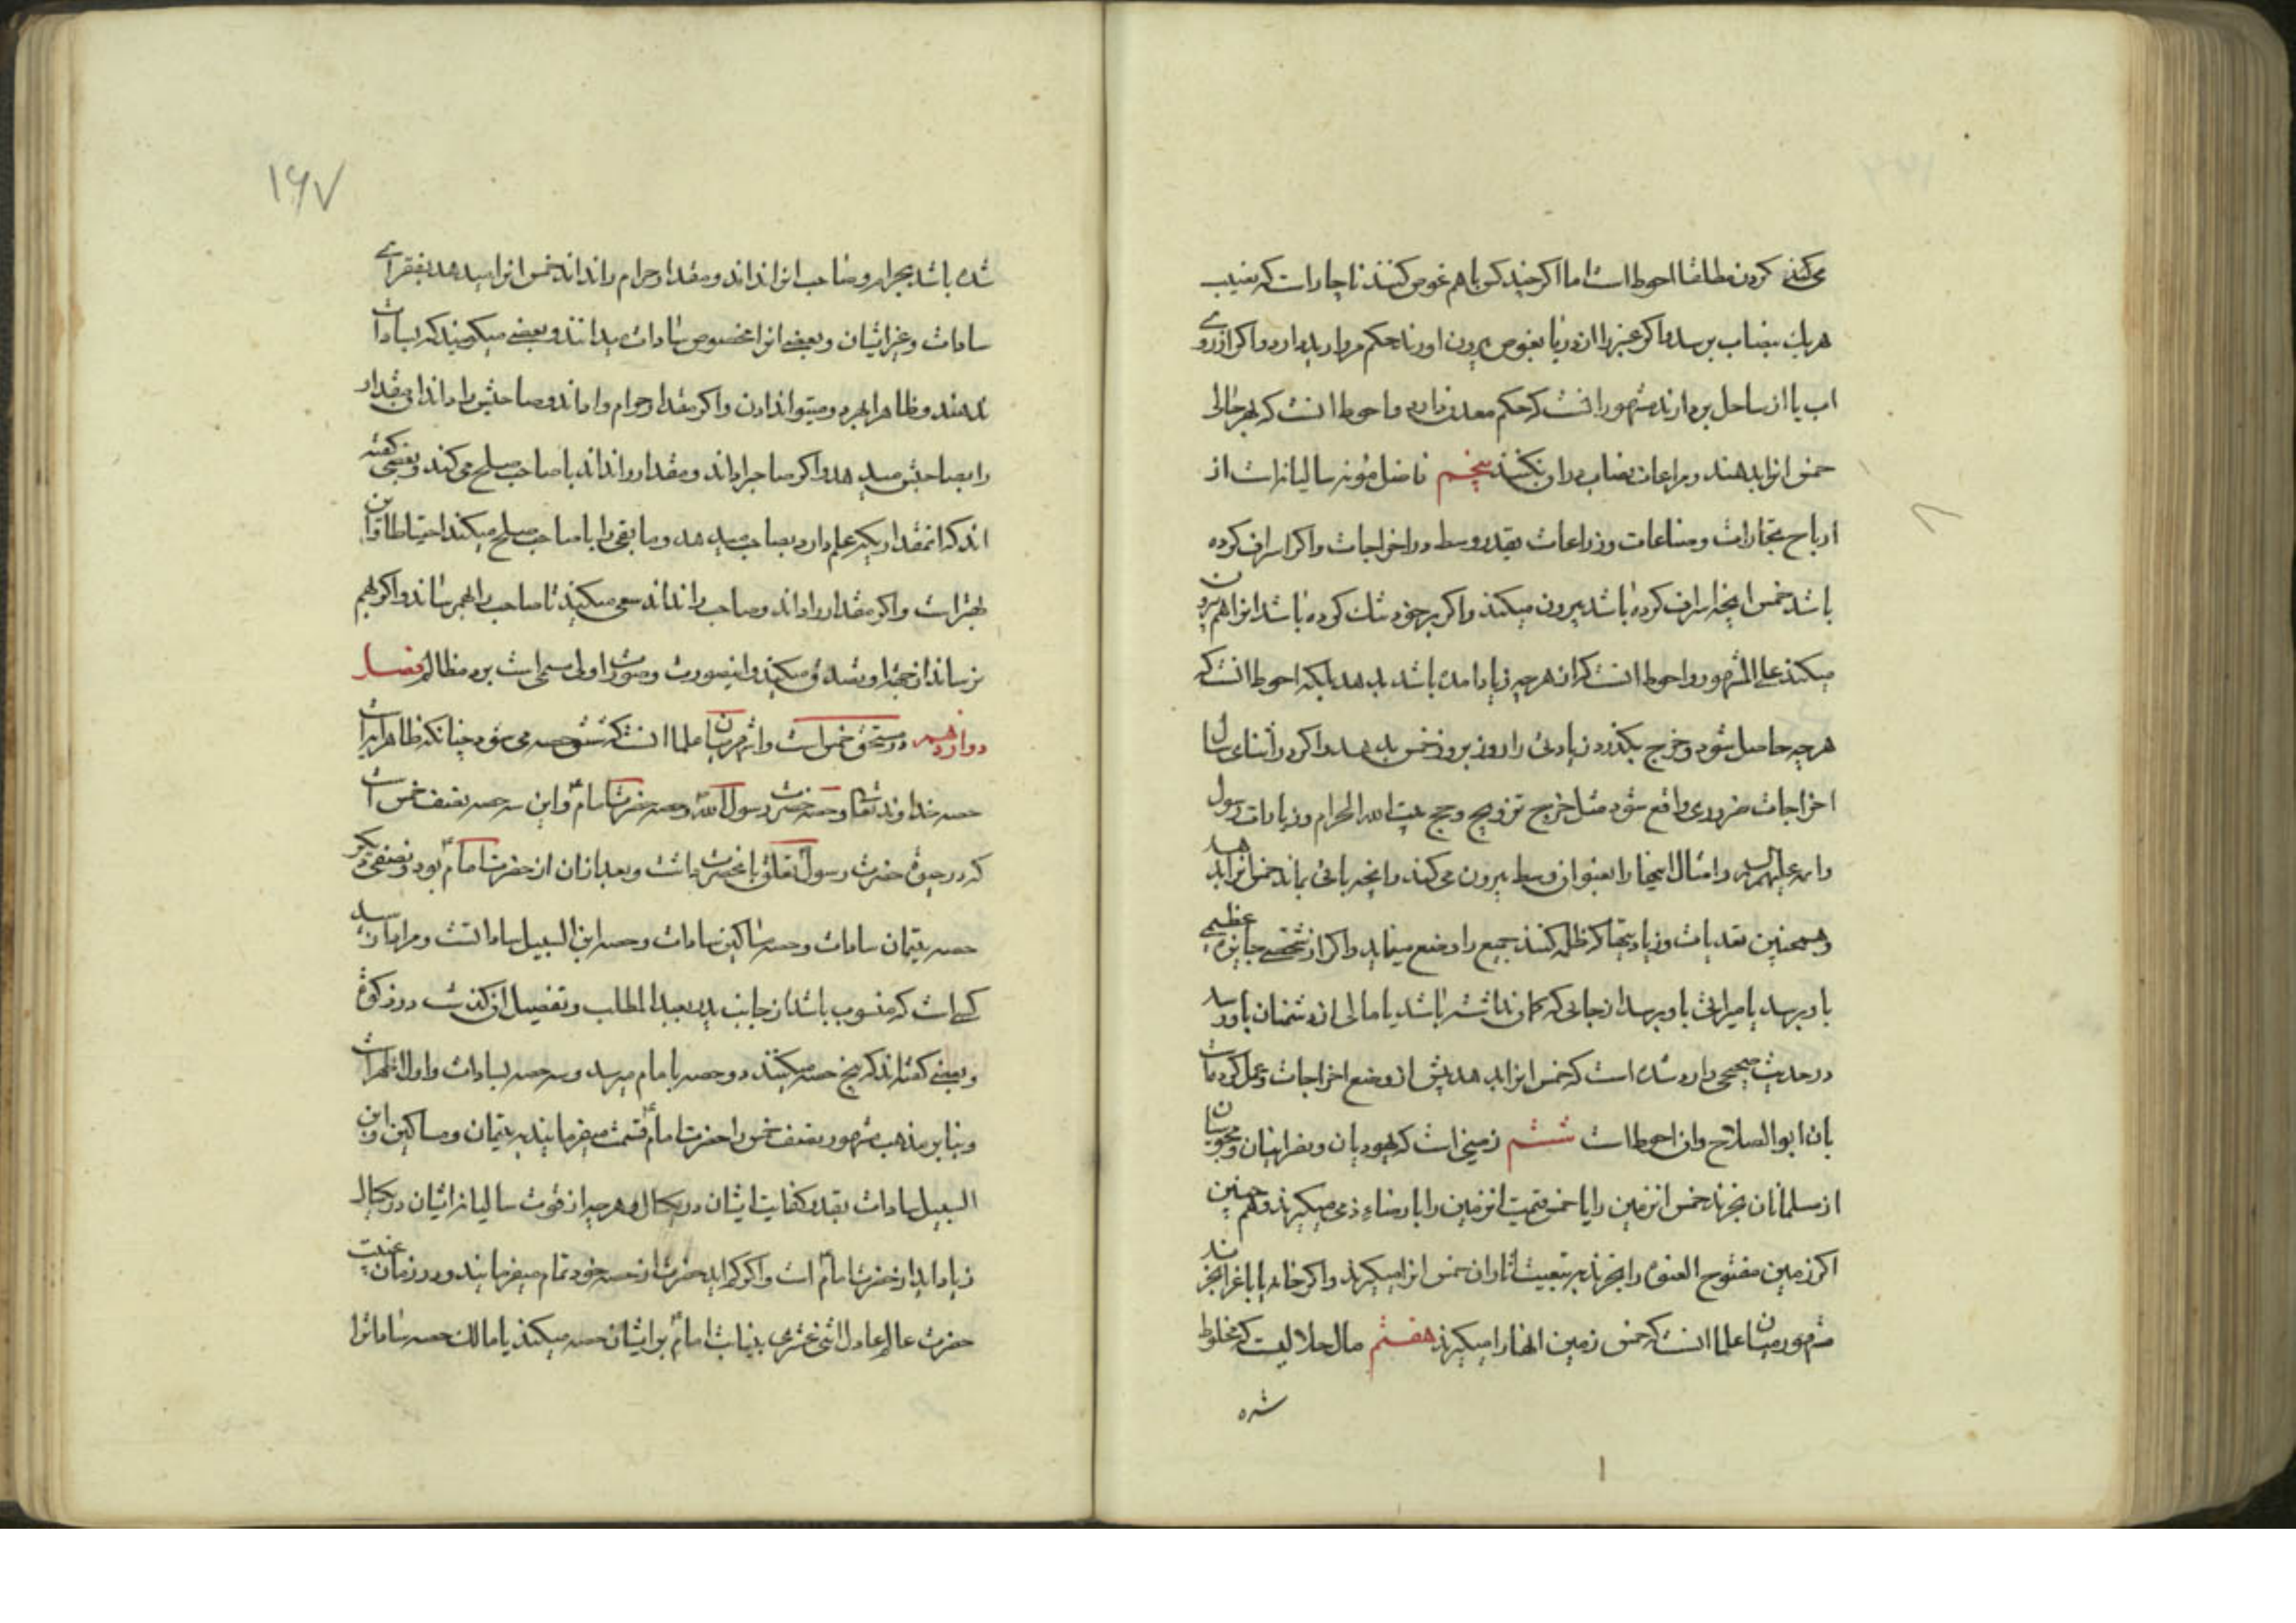 می‌کند کردن مطلقا احوط است اما اکر چند کس با هم غوص کنند ناچار است که نصیب
هریک بنصاب برسد و اکر عنبر را از دریا بغوص بیرون اورند حکم مروارید دارد و اکر از روی
اب یا از ساحل بردارند مشهور انست که حکم معدن دارد و احوط انست که بهر حال
خمس انرا بدهند و مراعات نصاب دران نکنند پنجم فاضل مؤنه سالیانه است از
ارباح تجارات و صناعات و زراعات بقدر وسط در اخراجات و اکر اسراف کرده
باشد خمس انچه اسراف کرده باشد بیرون میکند و اکر بر خود تنک کرده باشد انرا هم بیرون
میکند علی المشهور و احوط انست که از هر چه زیاد امده باشد بدهد بلکه احوط انست که
هر چه حاصل شود و خرج بکذرد زیادتی را روز بروز خمس بدهد و اکر در اثنای سال
اخراجات ضروری واقع شود مثل خرج تزویج و حج بیت الله الحرام و زیارات رسول
وائمه علیهم السلام و امثال اینها را بعنوان وسط بیرون می کند و انچه باقی بماند خمس انرا بدهد
و همچنین تعدیات و زیادتیها که ظلمه کنند جمیع را وضع مینماید و اکر از شخصی جایزه عظیمی
باو برسد یا میراثی باو برسد از جائی که کمان نداشته باشد یا مالی از دشمنان باو رسد
در حدیث صحیحی وارد شده است که خمس انرا بدهد پیش از وضع اخراجات و عمل کرده است
بان ابو الصلاح و ان احوط است ششم زمینی است که یهودیان و نصرانیان و مجوسیان
از مسلمانان بخرند خمس انزمین را یا خمس قیمت انزمین را با رضاء ذمی میکیرند و همچنین
اکر زمین مفتوح العنوه را بخرند به تبعیت اثار ان خمس انرا میکیرند و اکر خانه یا باغ را بخرند
مشهور میان علما انست که خمس زمین انها را میکیرند هفتم مال حلالیست که مخلوط
شده
۱۶۷
شده باشد بحرام و صاحب انرا نداند و مقدار حرام را نداند خمس انرا میدهد بفقرای
سادات و غیر ایشان و بعضی انرا مخصوص سادات میدانند و بعضی میکویند که بسادات
ندهند و ظاهرا بهر دو میتواند دادن و اکر مقدار حرام را داند و صاحبش را داند ان مقدار
را بصاحبش میدهد و اکر صاحب را داند و مقدار را نداند با صاحب صلح می کند و بعضی کفته
اند که انمقدار یکه علم دارد بصاحب میدهد و ما بقی را با صاحب صلح میکند احتیاطا و این
بهتر است و اکر مقدار را داند و صاحب را نداند سعی میکند تا صاحب را بهم رساند و اکر بهم
نرساند از جهة او تصدق میکند و اینصورت و صورت اولی مسمی است برد مظالم فصل
دوازدهم در مستحق خمس است و اشهر میان علما انست که شش حصه می شود چنانکه ظاهر ایه است
حصه خداوند تعالی و حصه حضرت رسول الله و حصه حضرت امام ع و این سه حصه نصف خمس است
که در حیوة حضرت رسول تعلق بانحضرت داشت و بعد از ان از حضرت امام ع بود و نصفی دیکر
حصه یتیمان سادات و حصه مساکین سادات و حصه ابن السبیل ساداتست و مراد از سید
کسی است که منسوب باشد از جانب پدر بعبد المطلب و تفصیل ان کذشت در زکوة
و بعضی کفته اند که پنج حصه میکنند دو حصه بامام میرسد و سه حصه بسادات و اول اظهر است
و بنابر مذهب مشهور نصف خمس را حضرت امام ع قسمت میفرمایند به یتیمان و مساکین و ابن
السبیل سادات بقدر کفایت ایشان در یکسال و هر چه از قوت سالیانه ایشان در یکسال
زیاد اید از حضرت امام ع است و اکر کم اید حضرت از حصه خود تمام میفرمایند و در زمان غیبت
حضرت عالم عادل اثنی عشری بنیابت امام ع بر ایشان حصه میکند یا مالک حصه سادات را